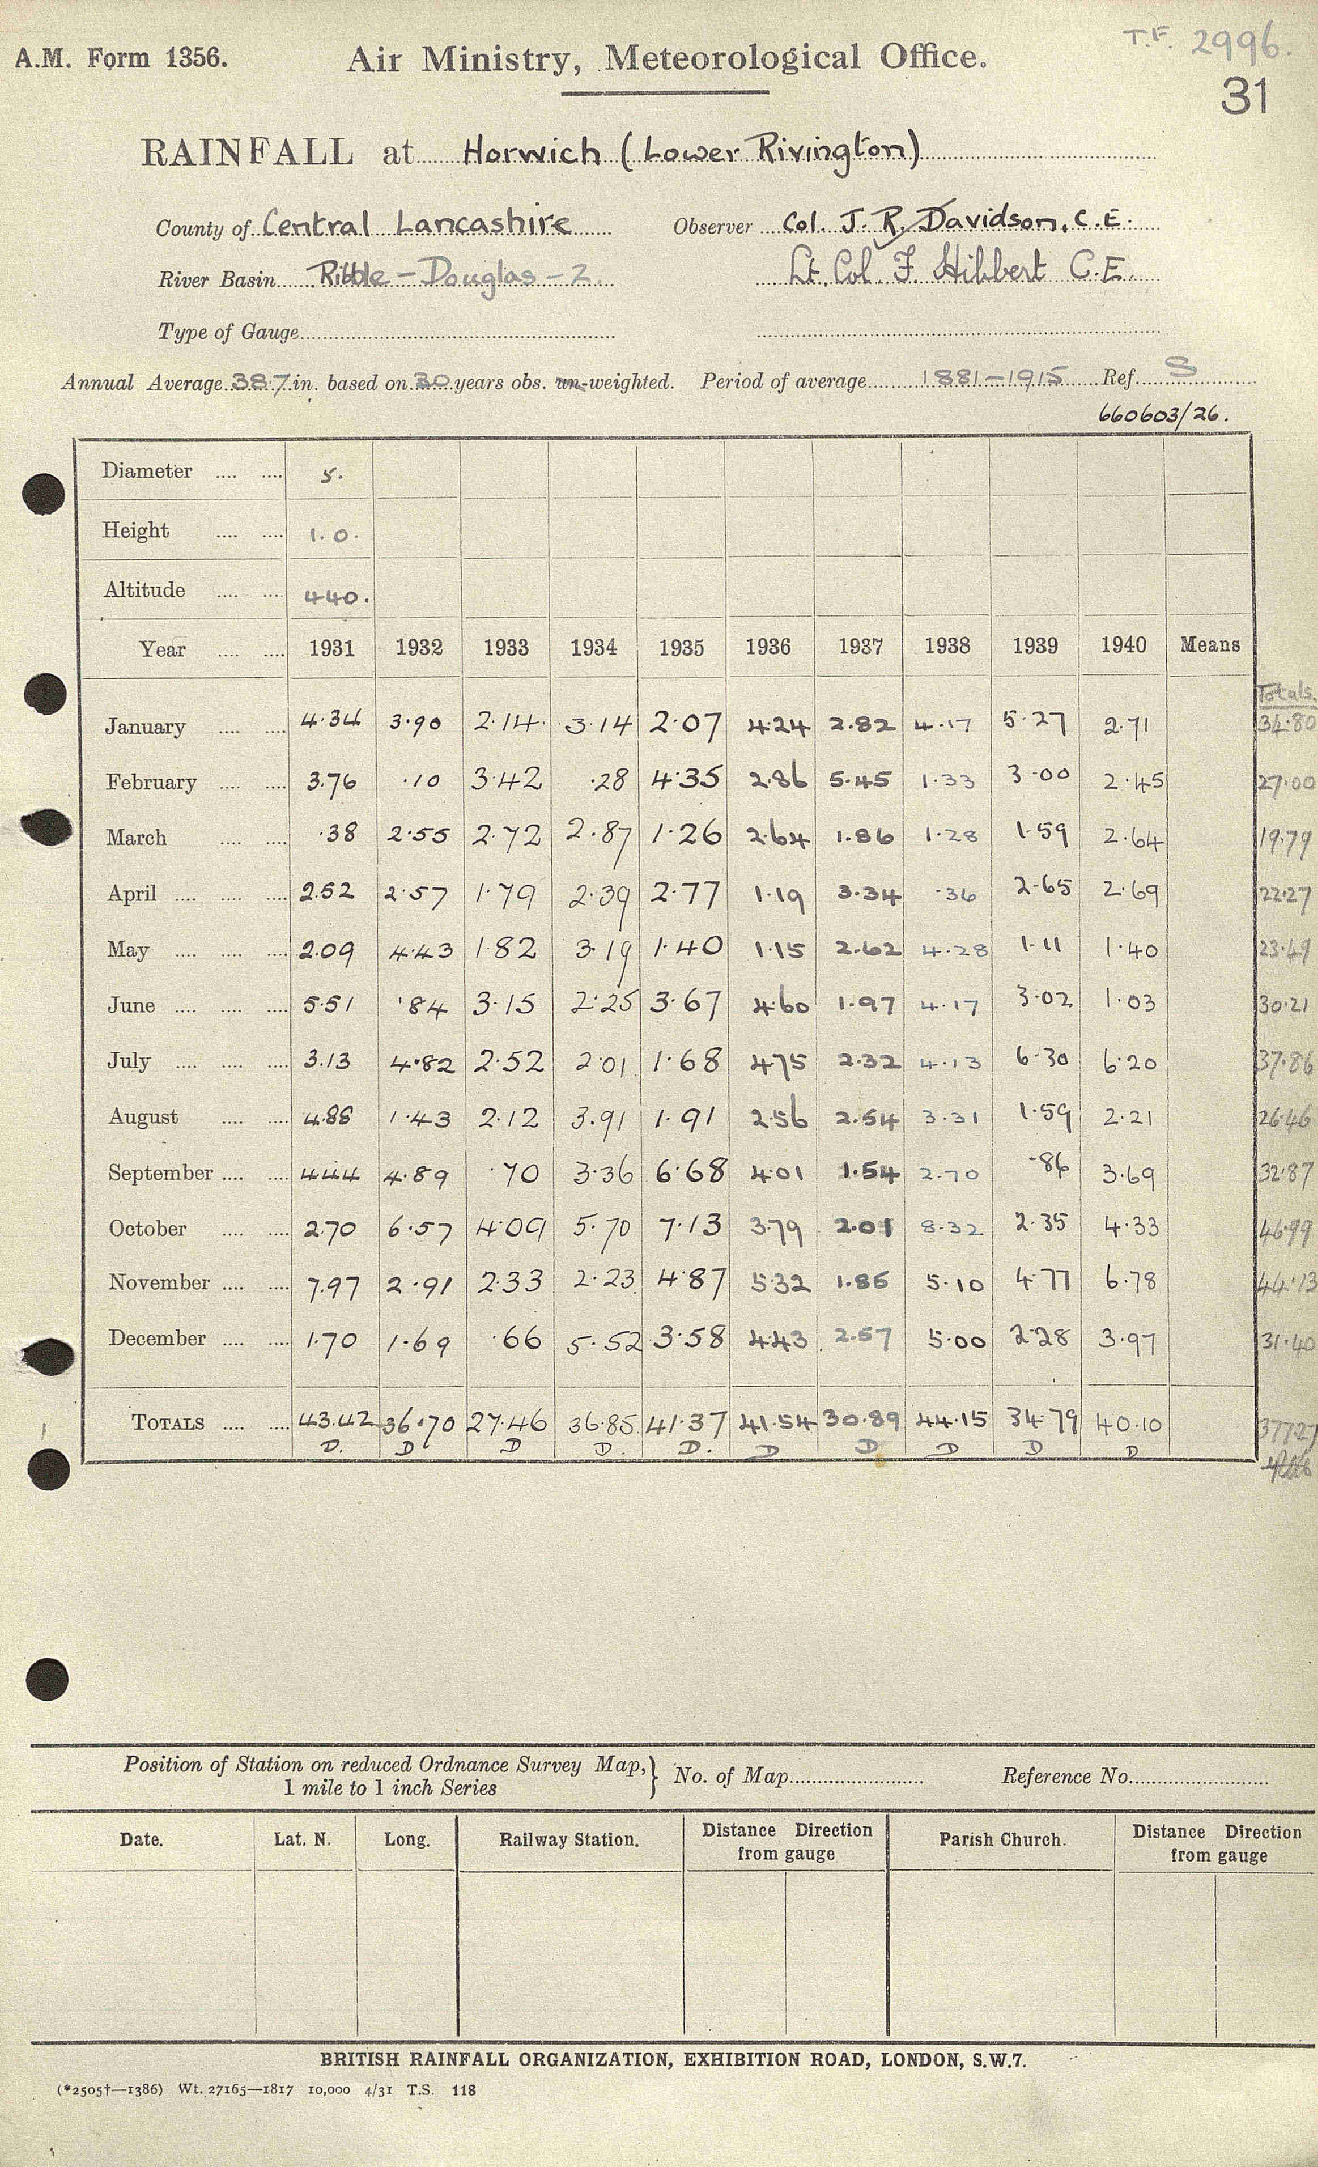 T.F. 2996.
A.M. Form 1356. Air Ministry, Meteorological Office.
31
RAINFALL at Horwich (Lower Rivington)
County of Central Lancashire Observer Col. J. R. Davidson, C.E.
River Basin Ribble - Douglas - 2. Lt. Col. F. Hibbert C.E.
Type of Gauge
Annual Average 38.7 in. based on 30 years obs. un-weighted. Period of average 1881-1915 Ref. S
660603/26.
Diameter 5.
Height 1.0.
Altitude 440.
Year 1931 1932 1933 1934 1935 1936 1937 1938 1939 1940 Means
Totals.
January 4.34 3.90 2.14 3.14 2.07 4.24 2.82 4.17 5.27 2.71 34.80
February 3.76 .10 3.42 .28 4.35 2.86 5.45 1.33 3.00 2.45 27.00
March .38 2.55 2.72 2.87 1.26 2.64 1.86 1.28 1.59 2.64 19.79
April 2.52 2.57 1.79 2.39 2.77 1.19 3.34 .36 2.65 2.69 22.27
May 2.09 4.43 1.82 3.19 1.40 1.15 2.62 4.28 1.11 1.40 23.49
June 5.51 .84 3.15 2.25 3.67 4.60 1.97 4.17 3.02 1.03 30.21
July 3.13 4.82 2.52 2.01 1.68 4.75 2.32 4.13 6.30 6.20 37.86
August 4.88 1.43 2.12 3.91 1.91 2.56 2.54 3.31 1.59 2.21 26.46
September 4.44 4.89 .70 3.36 6.68 4.01 1.54 2.70 .86 3.69 32.87
October 2.70 6.57 4.09 5.70 7.13 3.79 2.01 8.32 2.35 4.33 46.99
November 7.97 2.91 2.33 2.23 4.87 5.32 1.85 5.10 4.77 6.78 44.13
December 1.70 1.69 .66 5.52 3.58 4.43 2.57 5.00 2.28 3.97 31.40
TOTALS 43.42 36.70 27.46 36.85 41.37 41.54 30.89 44.15 34.79 40.10 377.27
D. D D D. D. D D D D D
Position of Station on reduced Ordnance Survey Map, } No. of Map Reference No.
1 mile to 1 inch Series
Date. Lat. N. Long. Railway Station. Distance Direction from gauge Parish Church. Distance Direction from gauge
BRITISH RAINFALL ORGANIZATION, EXHIBITION ROAD, LONDON, S.W.7.
(*2505†—1386) Wt. 27165—1817 10,000 4/31 T.S. 118